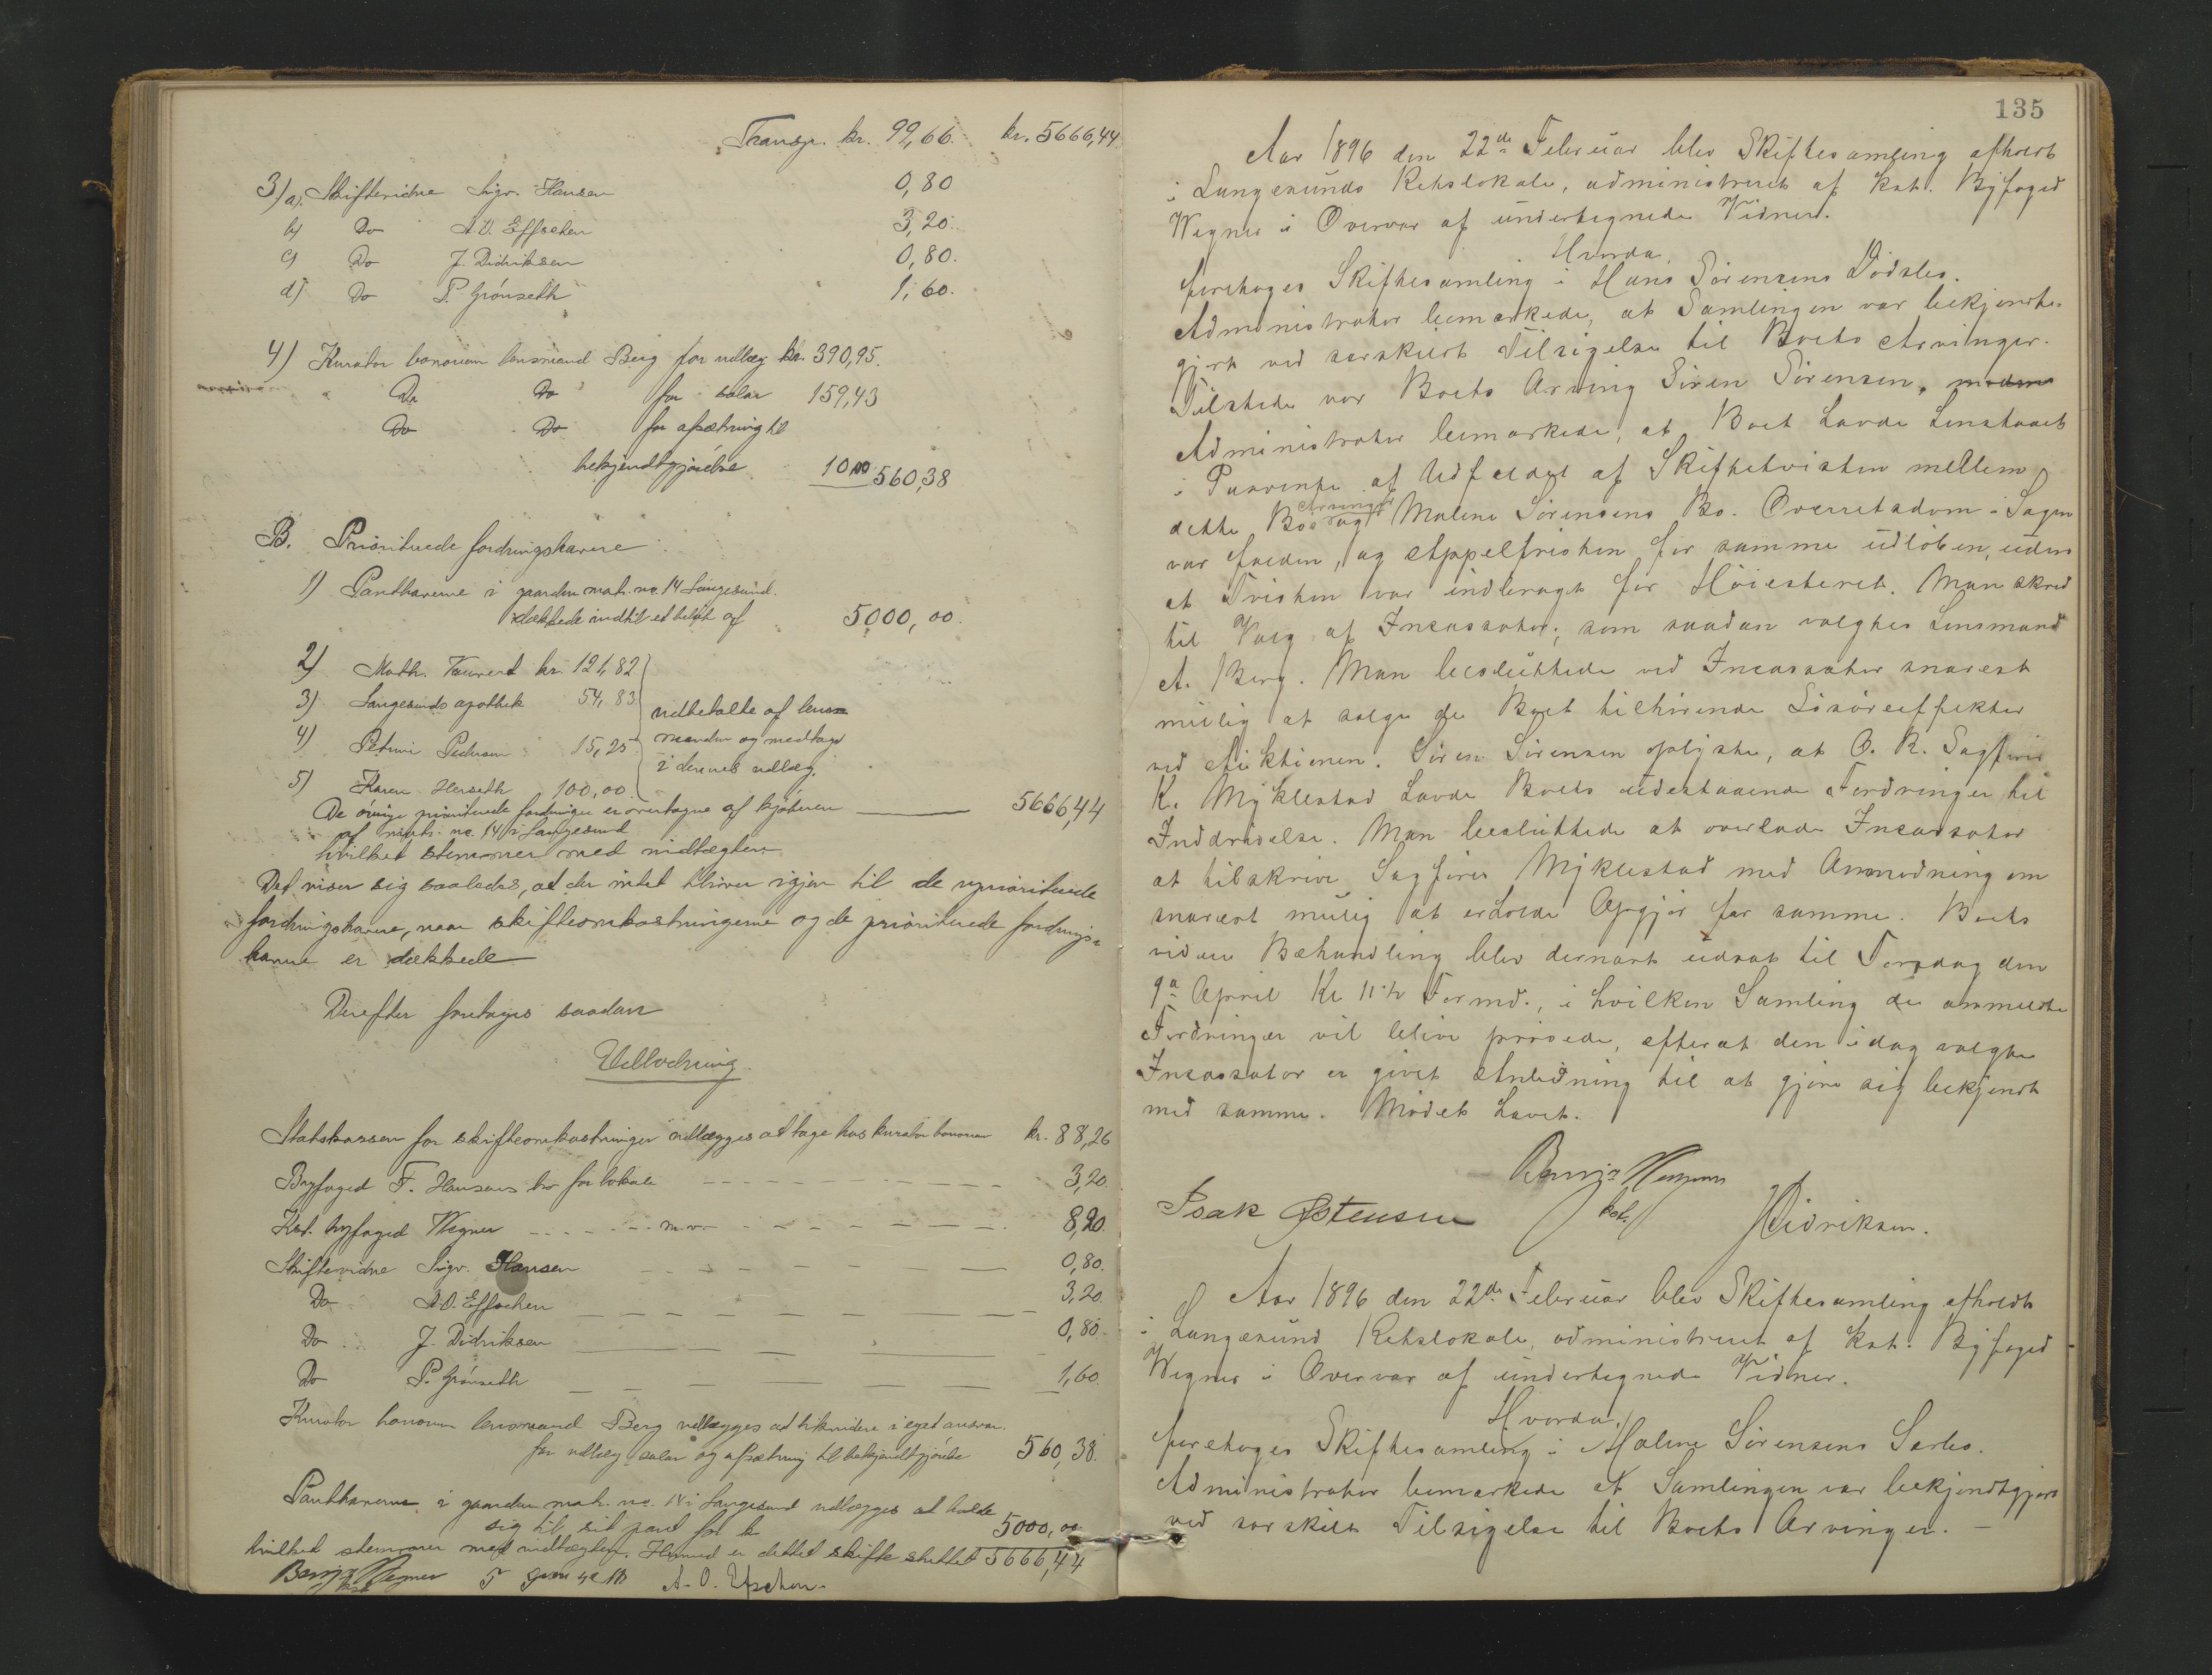 Transp. kr. 99,66. kr. 5666,44
3) a). Skiftevidne Sigv. Hansen 0,80
b) Do A. O. Effochen 3,20.
c) Do J. Didriksen 0,80.
d) Do P. Grönseth 1,60.
4) Kurator bonorum lensmand Berg for udlæg kr. 390,95.
Do Do for salær 159,43
Do Do for afsætning til
bekjendtgjørelse 10 00 560,38
B. Prioriterede fordringshavere
1) Panthaverne i gaarden matr. no. 14 Langesund.
dækkede indtil et beløb af 5000,00.
2) Math. kr. 121,82
3) Langesunds apothek 54,83
udbetalte af lens-
4) Petrine Pedersen 15,25
manden og medtaget
i dennes udlæg.
5) Karen Herseth 100,00.
De øvrige prioriterede fordringer er overtagne af kjøberen 5666,44
af matr. no. 14 i Langesund
hvilket stemmer med indtægten.
Det viser sig saaledes, at der intet bliver igjen til de uprioriterede
fordringshavere, naar skifteomkostningerne og de prioriterede fordrings-
havere er dækkede
Derefter foretoges saadan
Udlodning.
Statskassen for skifteomkostninger udlægges at tage hos kurator bonorum kr. 88,26
Byfoged F. Hansens bo for lokale 3,20.
Kst. byfoged Wegner m.v. 8,20.
Skiftevidne Sigv. Hansen 0,80.
Do A. O. Effochen 3,20.
Do J. Didriksen 0,80.
Do P. Grönseth 1,60.
Kurator bonorum lensmand Berg udlægges at likvidere i eget ansvar.
for udlæg, salær og afsætning til bekjendtgjørelse 560,38.
Panthaverne i gaarden matr. no. 14 i Langesund udlægges at holde
sig til sit pant for kr 5000,00
hvilket stemmer med indtægten. Hermed er dette skifte sluttet 5666,44
Benj. Wegner
kst
P Grönseth A. O. Effochen.
135
Aar 1896 den 22de Februar blev Skiftesamling afholdt
i Langesunds Retslokale, administreret af kst. Byfoged
Wegner i Overvær af undertegnede Vidner.
Hvorda,
foretoges Skiftesamling i Hans Sörensens Dödsbo.
Administrator bemærkede, at Samlingen var bekjendt-
gjort ved særskilt Tilsigelse til Boets Arvinger.
Tilstede var Boets Arving Sören Sörensen,
Administrator bemærkede, at Boet havde henstaaet
i Paavente af Udfaldet af Skiftetvisten mellem
Arvinger
dette Bos og Maline Sörensens Bo. Overretsdom i Sagen
var falden, og Appelfristen for samme udlöben, uden
at Tvisten var indbragt for Höiesteret. Man skred
til Valg af Incassator; som saadan valgtes Lensmand
A. Berg. Man besluttede ved Incassator snarest
mulig at sælge de Boet tilhörende Lösöreeffekter
ved Auktionen. Sören Sörensen oplyste, at O. R. Sagförer
K. Myklestad havde Boets udestaaende Fordringer til
Inddrivelse. Man besluttede at overlade Incassator
at tilskrive Sagförer Myklestad med Anmodning om
snarest mulig at erholde Opgjör for samme. Boets
videre Behandling blev dernæst udsat til Torsdag den
9de April Kl 11 1/2 Formd., i hvilken Samling de anmeldte
Fordringer vil blive prövede, efterat den idag valgte
Incassator er givet Anledning til at gjöre sig bekjendt
med samme. Mödet hævet.
Benj. Wegner
kst.
Isak Østensen J Didriksen.
Aar 1896 den 22de Februar blev Skiftesamling afholdt
i Langesund Retslokale, administreret af kst. Byfoged
Wegner i Overvær af undertegnede Vidner.
Hvorda,
foretoges Skiftesamling i Maline Sörensens Særbo.
Administrator bemærkede at Samlingen var bekjendtgjort
ved særskilt Tilsigelse til Boets Arvinger. —